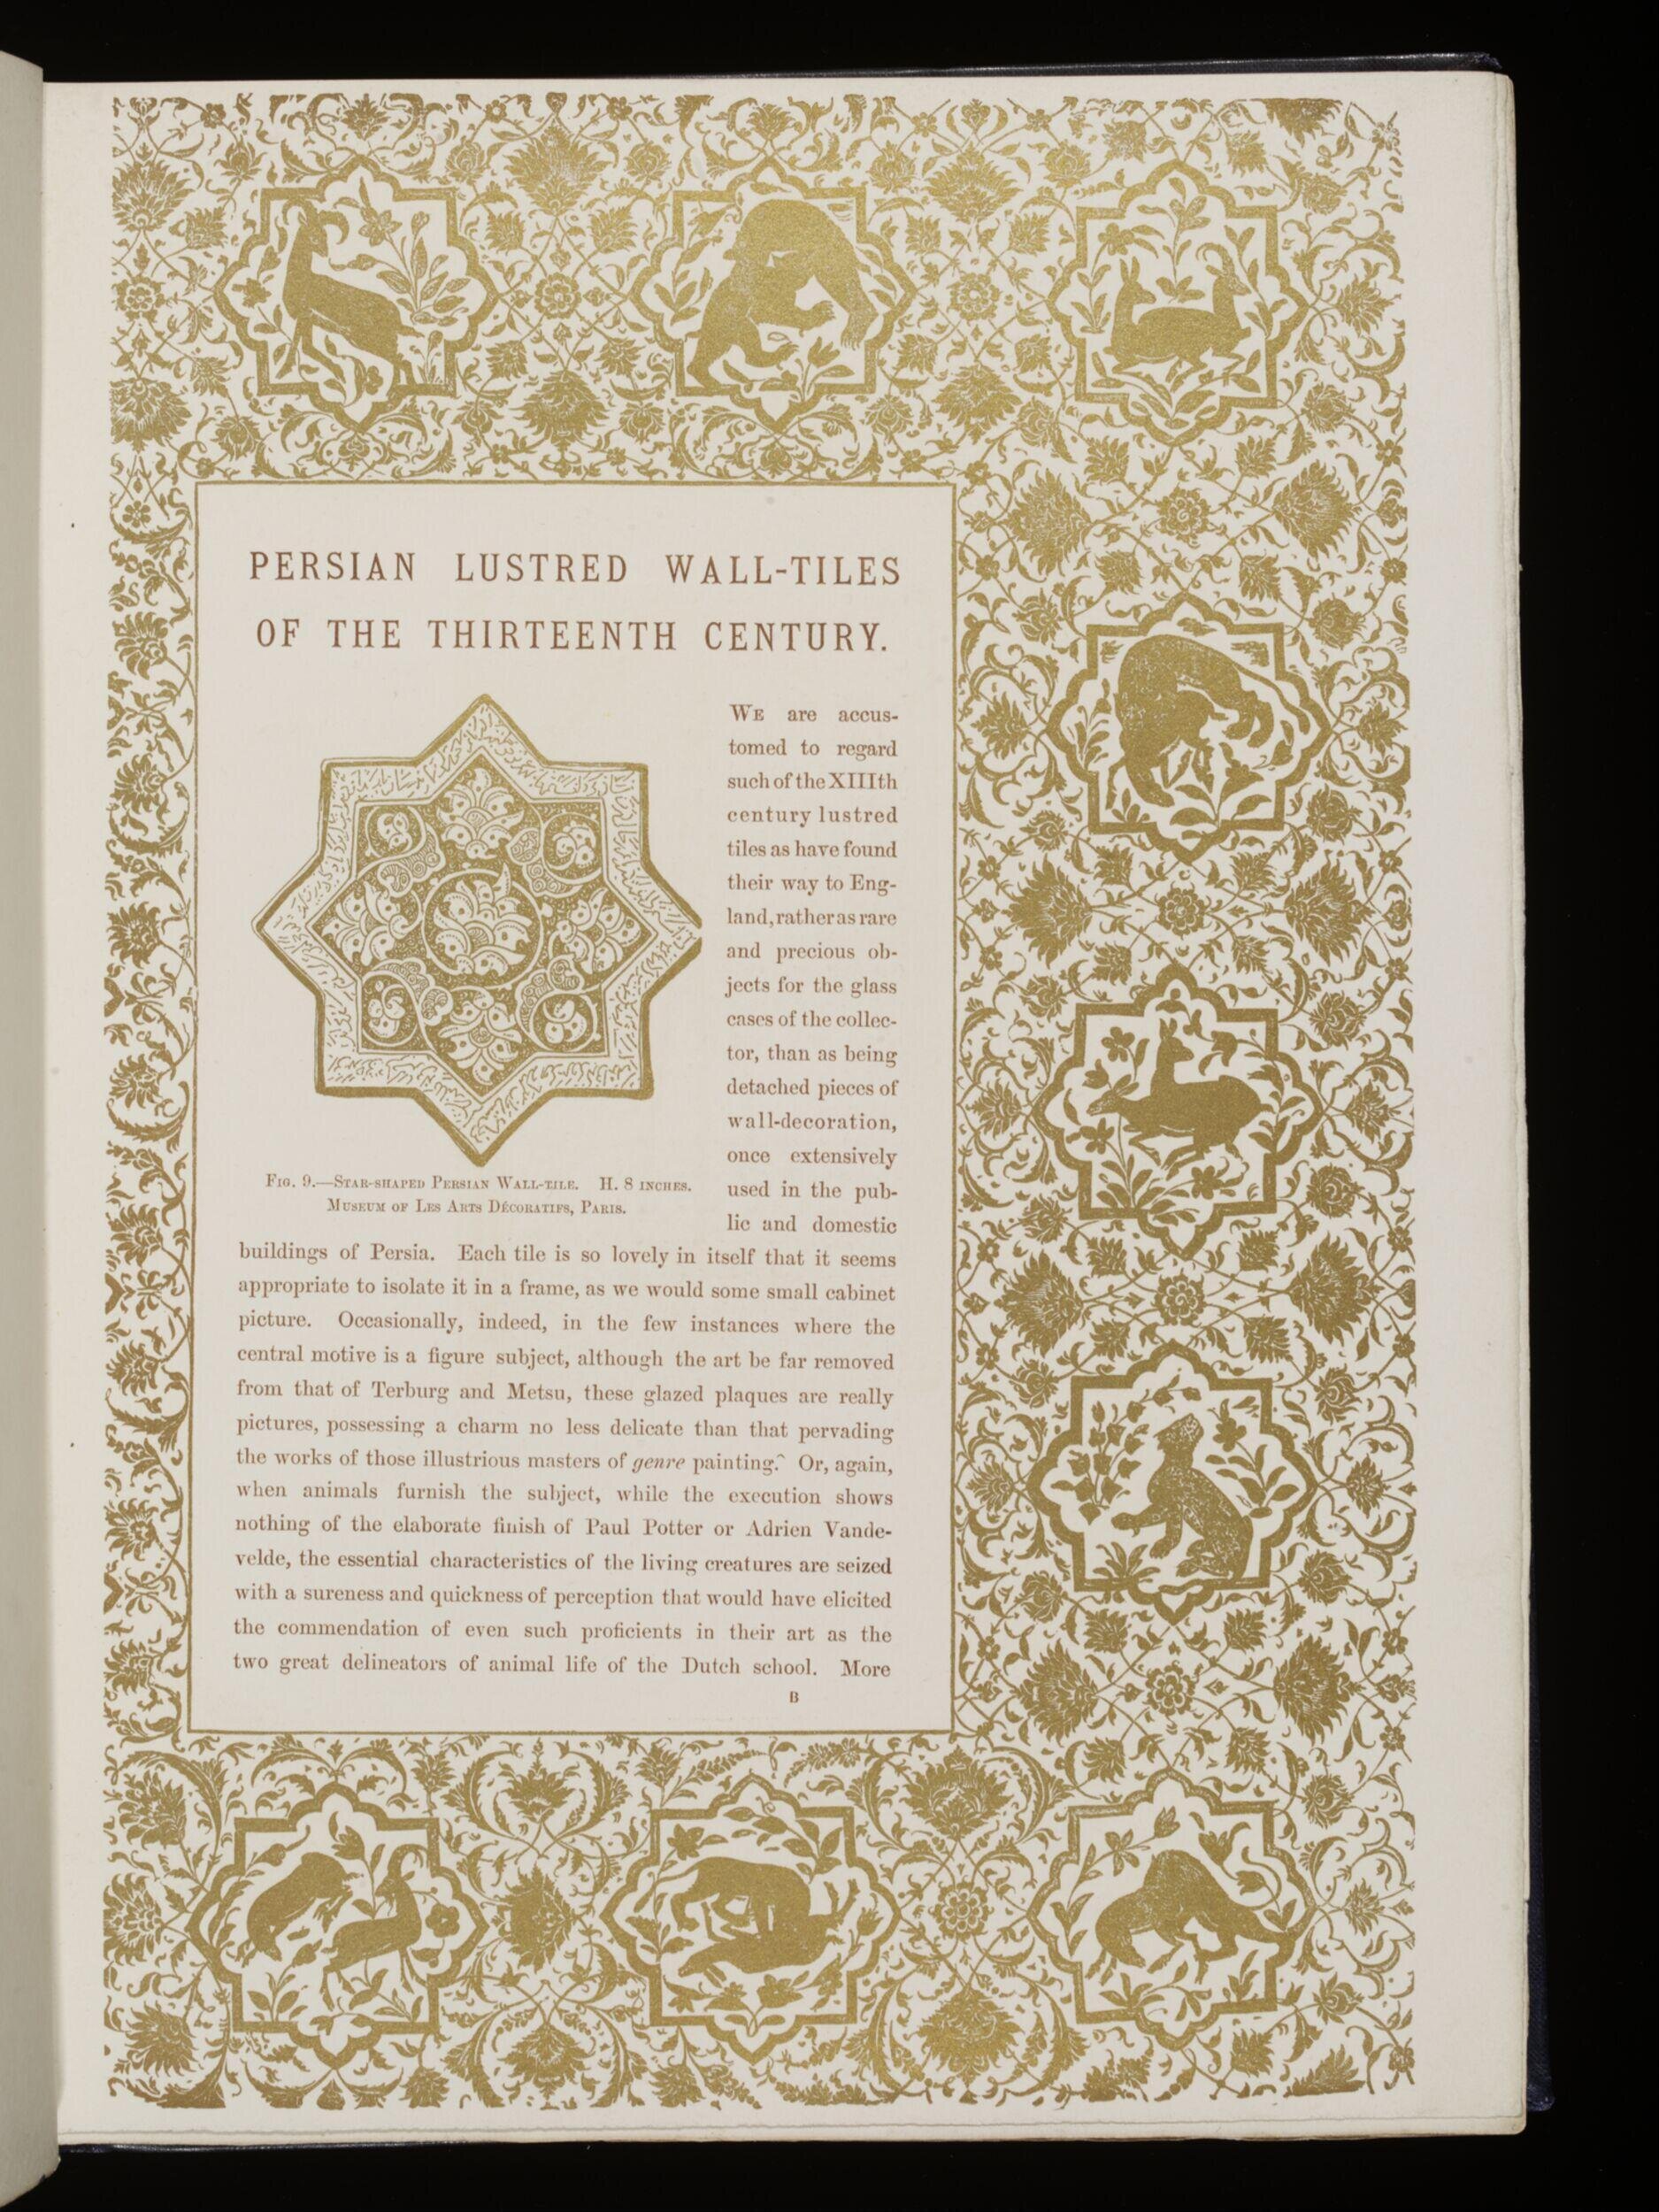 PERSIAN LUSTRED WALL-TILES
OF THE THIRTEENTH CENTURY.
WE are accus-
tomed to regard
such of the XIIIth
century lustred
tiles as have found
their way to Eng-
land, rather as rare
and precious ob-
jects for the glass
cases of the collec-
tor, than as being
detached pieces of
wall-decoration,
once extensively
used in the pub-
lic and domestic
FIG. 9.—STAR-SHAPED PERSIAN WALL-TILE. H. 8 INCHES.
MUSEUM OF LES ARTS DÉCORATIFS, PARIS.
buildings of Persia. Each tile is so lovely in itself that it seems
appropriate to isolate it in a frame, as we would some small cabinet
picture. Occasionally, indeed, in the few instances where the
central motive is a figure subject, although the art be far removed
from that of Terburg and Metsu, these glazed plaques are really
pictures, possessing a charm no less delicate than that pervading
the works of those illustrious masters of genre painting. Or, again,
when animals furnish the subject, while the execution shows
nothing of the elaborate finish of Paul Potter or Adrien Vande-
velde, the essential characteristics of the living creatures are seized
with a sureness and quickness of perception that would have elicited
the commendation of even such proficients in their art as the
two great delineators of animal life of the Dutch school. More
B